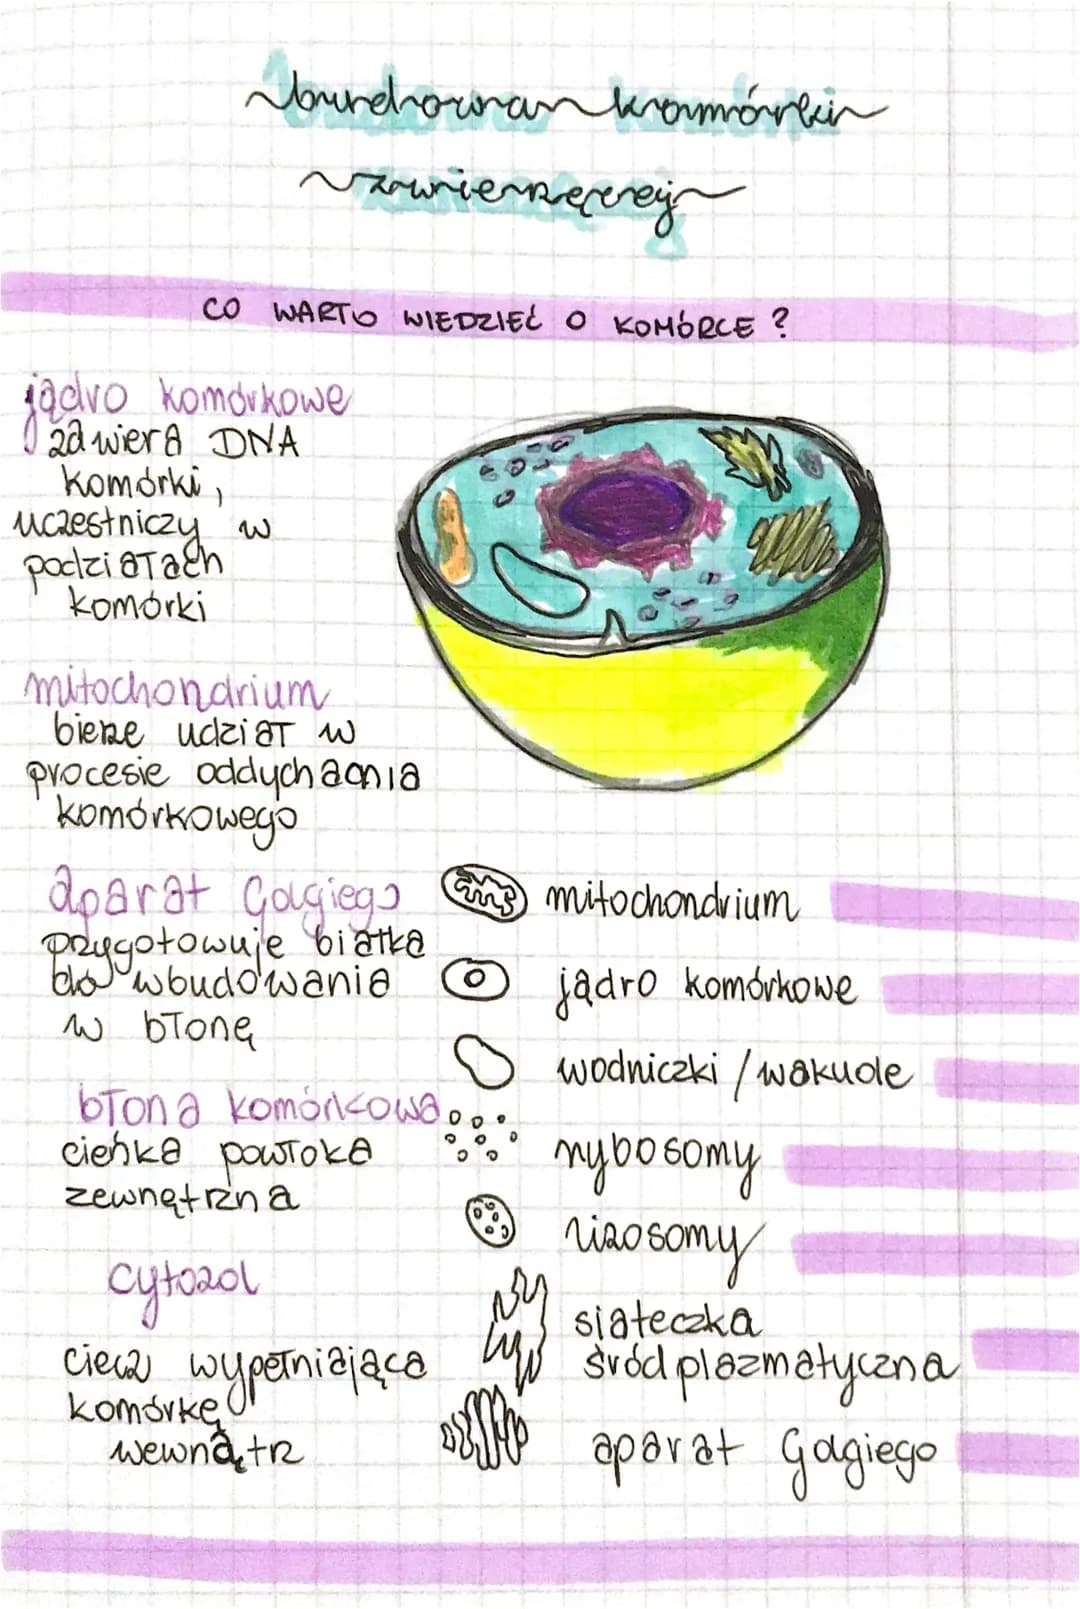 budowa komórki
zwierzęcej
CO WARTO WIEDZIEĆ O KOMÓRCE ?
jądro komórkowe
zawiera DNA
komórki,
uczestniczy w
podziałach
komórki
mitochondrium
bierze udział w
procesie oddychania
komórkowego
aparat Golgiego
przygotowuje białka
do wbudowania
w błonę
błona komórkowa
cieńka powłoka
zewnętrzna
cytozol
ciecz wypełniająca
komórkę
wewnątrz
mitochondrium
jądro komórkowe
wodniczki / wakuole
rybosomy
lizosomy
siateczka
śródplazmatyczna
aparat Golgiego